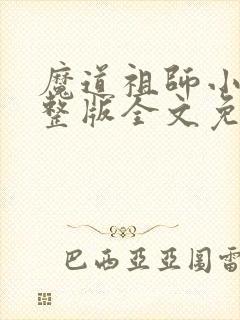 魔道祖師小
整版全文免
巴西亞亞圖雷